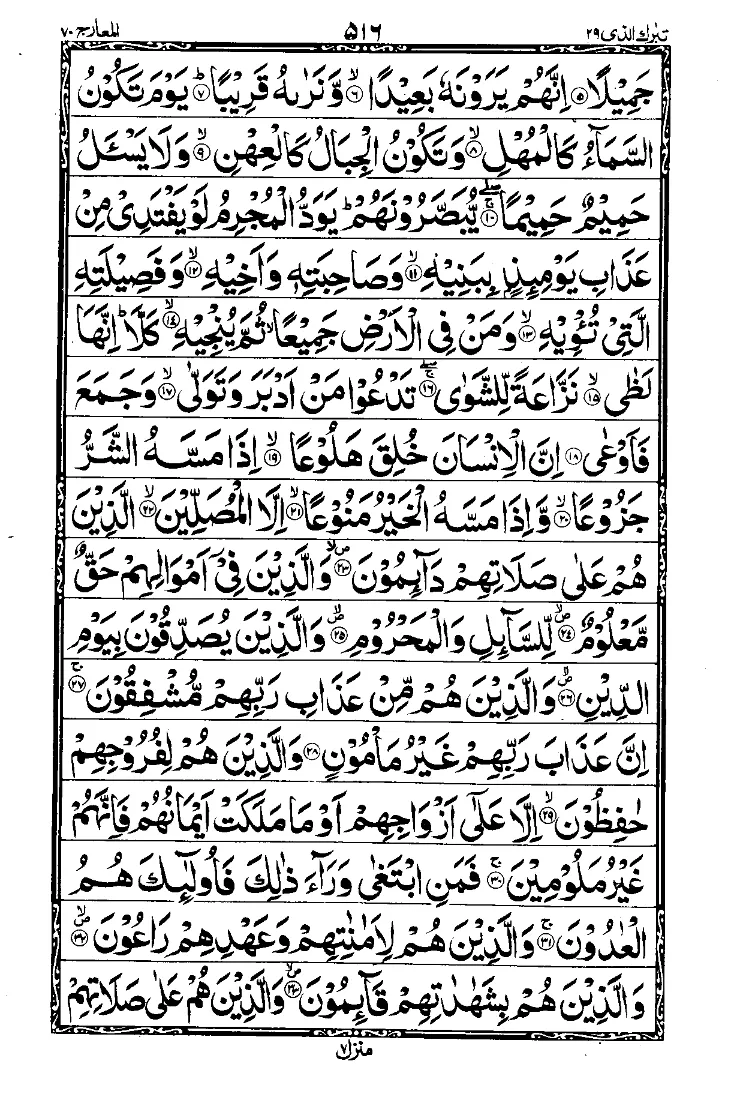 تبٰرك الذی ۲۹ ۵۱٦ المعارج ۷۰
جَمِيْلًا ﴿۵﴾ اِنَّهُمْ يَرَوْنَهٗ بَعِيْدًا ﴿۶﴾ۙ وَّنَرٰىهُ قَرِيْبًا ﴿۷﴾ؕ يَوْمَ تَكُوْنُ
السَّمَآءُ كَالْمُهْلِ ﴿۸﴾ۙ وَتَكُوْنُ الْجِبَالُ كَالْعِهْنِ ﴿۹﴾ۙ وَلَا يَسْـَٔلُ
حَمِيْمٌ حَمِيْمًا ﴿۱۰﴾ۚۖ يُّبَصَّرُوْنَهُمْ ؕ يَوَدُّ الْمُجْرِمُ لَوْ يَفْتَدِىْ مِنْ
عَذَابِ يَوْمِئِذٍۢ بِبَنِيْهِ ﴿۱۱﴾ۙ وَصَاحِبَتِهٖ وَاَخِيْهِ ﴿۱۲﴾ۙ وَفَصِيْلَتِهِ
الَّتِىْ تُـْٔوِيْهِ ﴿۱۳﴾ۙ وَمَنْ فِى الْاَرْضِ جَمِيْعًا ۙ ثُمَّ يُنْجِيْهِ ﴿۱۴﴾ۙ كَلَّا ؕ اِنَّهَا
لَظٰى ﴿۱۵﴾ۙ نَزَّاعَةً لِّلشَّوٰى ﴿۱۶﴾ۚۖ تَدْعُوْا مَنْ اَدْبَرَ وَتَوَلّٰى ﴿۱۷﴾ۙ وَجَمَعَ
فَاَوْعٰى ﴿۱۸﴾ اِنَّ الْاِنْسَانَ خُلِقَ هَلُوْعًا ﴿۱۹﴾ۙ اِذَا مَسَّهُ الشَّرُّ
جَزُوْعًا ﴿۲۰﴾ۙ وَّاِذَا مَسَّهُ الْخَيْرُ مَنُوْعًا ﴿۲۱﴾ۙ اِلَّا الْمُصَلِّيْنَ ﴿۲۲﴾ۙ الَّذِيْنَ
هُمْ عَلٰى صَلَاتِهِمْ دَآئِمُوْنَ ﴿۲۳﴾۪ۙ وَالَّذِيْنَ فِىْۤ اَمْوَالِهِمْ حَقٌّ
مَّعْلُوْمٌ ﴿۲۴﴾۪ۙ لِّلسَّآئِلِ وَالْمَحْرُوْمِ ﴿۲۵﴾۪ۙ وَالَّذِيْنَ يُصَدِّقُوْنَ بِيَوْمِ
الدِّيْنِ ﴿۲۶﴾۪ۙ وَالَّذِيْنَ هُمْ مِّنْ عَذَابِ رَبِّهِمْ مُّشْفِقُوْنَ ﴿۲۷﴾ۚ
اِنَّ عَذَابَ رَبِّهِمْ غَيْرُ مَاْمُوْنٍ ﴿۲۸﴾ وَالَّذِيْنَ هُمْ لِفُرُوْجِهِمْ
حٰفِظُوْنَ ﴿۲۹﴾ۙ اِلَّا عَلٰٓى اَزْوَاجِهِمْ اَوْ مَا مَلَكَتْ اَيْمَانُهُمْ فَاِنَّهُمْ
غَيْرُ مَلُوْمِيْنَ ﴿۳۰﴾ۚ فَمَنِ ابْتَغٰى وَرَآءَ ذٰلِكَ فَاُولٰٓئِكَ هُمُ
الْعٰدُوْنَ ﴿۳۱﴾ۚ وَالَّذِيْنَ هُمْ لِاَمٰنٰتِهِمْ وَعَهْدِهِمْ رَاعُوْنَ ﴿۳۲﴾۪ۙ
وَالَّذِيْنَ هُمْ بِشَهٰدٰتِهِمْ قَآئِمُوْنَ ﴿۳۳﴾۪ۙ وَالَّذِيْنَ هُمْ عَلٰى صَلَاتِهِمْ
منزل ۷